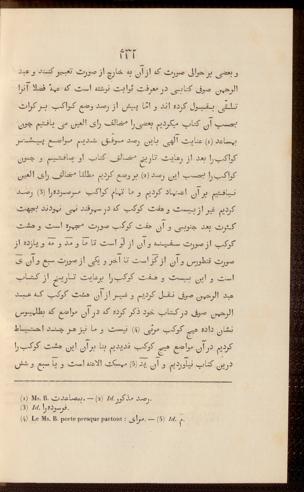 ۴۳۲
و بعضی بر حوالی صورت که از آن به خارج از صورت تعبیر کنند و عبد
الرحمن صوفی کتابی در معرفت ثوابت نوشته است که همهٔ فضلا آنرا
تلقّی بقبول کرده اند و امّا پیش از رصد وضع کواکب بر کرات
بحسب آن کتاب میکردیم بعضی را مخالف رای العین می یافتیم چون
بمساعد (1) عنایت الهی باین رصد موفّق شدیم مواضع بیشتر
کواکب را بعد از رعایت تاریخ مخالف کتاب او یافتیم و چون
کواکب را بحسب این رصد (2) بر وضع کردیم مطلقا مخالف رای العین
نیافتیم بر آن اعتماد کردیم و ما تمام کواکب مرصوده را (3) رصد
کردیم غیر از بیست و هفت کوکب که در سمرقند نمی نمودند بجهت
کثرت بعد جنوبی و آن هفت کوکب صورت مجمره است و هشت
کوکب از صورت سفینه و آن از لو است تا ما و مد و مه و یازده از
صورت قنطورس و آن از کز است تا آخر و یکی از صورت سبع و آن ی
است و این بیست و هفت کوکب را برعایت تاریخ از کتاب
عبد الرحمن صوفی نقل کردیم و غیر از آن هشت کوکب که عبد
الرحمن صوفی در کتاب خود ذکر کرده که در آن مواضع که بطلمیوس
نشان داده هیچ کوکب مرئی (4) نیست و ما نیز هر چند احتیاط
کردیم در آن مواضع هیچ کوکب ندیدیم بنا بر آن این هشت کوکب را
درین کتاب نیآوردیم و آن ید (5) ممسک الاعنه است و یا سبع و شش
(1) Ms. B. بمساعدت. — (2) Id. رصد مذکور.
(3) Id. فرسوده را.
(4) Le Ms. B. porte presque partout : مرای. — (5) Id. م.